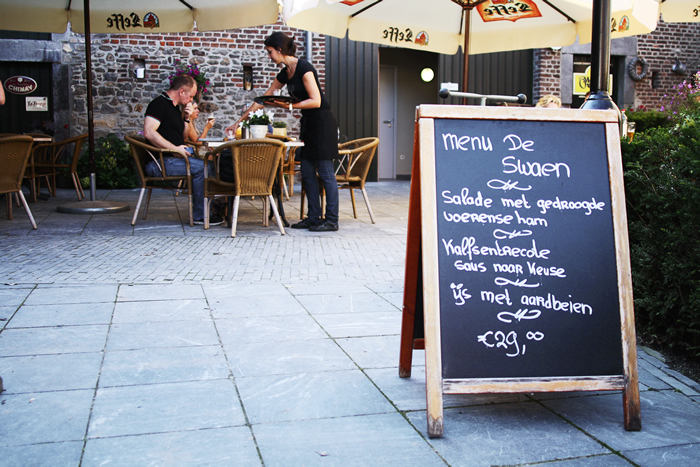 Leffe
Leffe
Leffe
Leffe
CHIMAY
menu De
Swaen
Salade met gedroogde
voerense ham
Kalfsentrecote
saus naar Keuse
ijs met aardbeien
€29,00